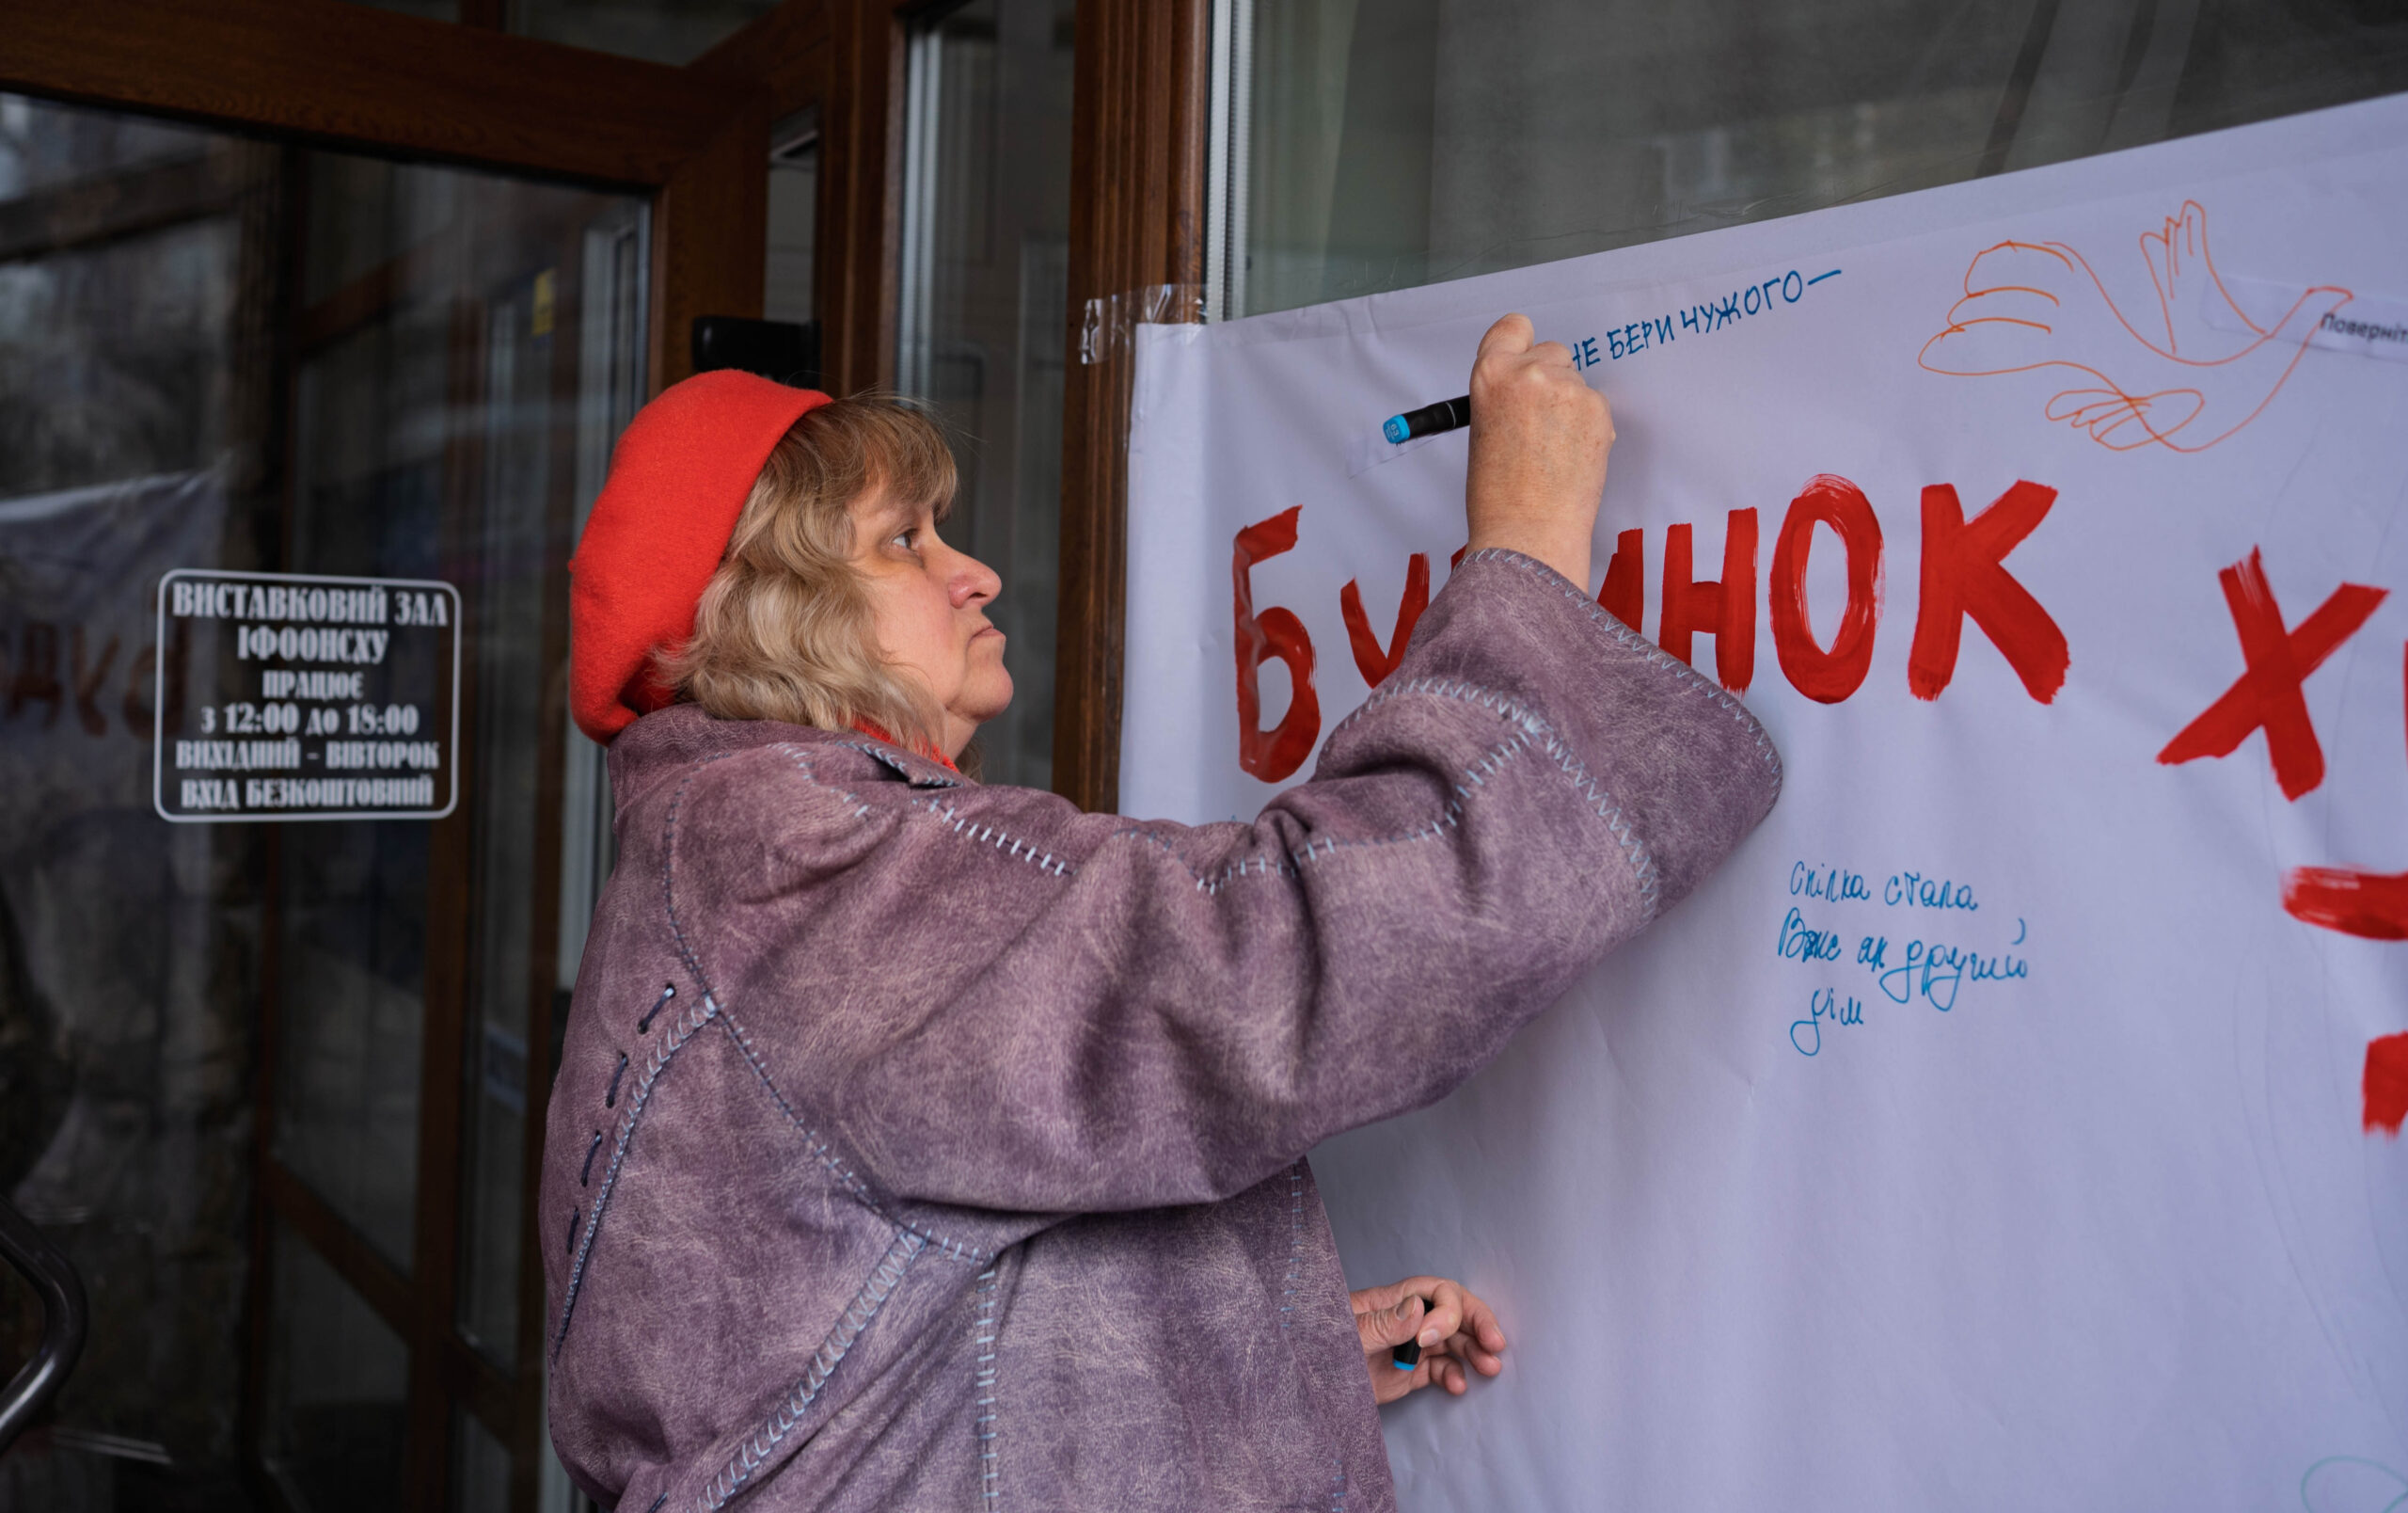 ВИСТАВКОВИЙ ЗАЛ
ІФООНСХУ
ПРАЦЮЄ
з 12:00 до 18:00
ВИХІДНИЙ - ВІВТОРОК
ВХІД БЕЗКОШТОВНИЙ
НЕ БЕРИ ЧУЖОГО—
Поверніт
Будинок
Х
Спілка стала
Вже як другий
дім